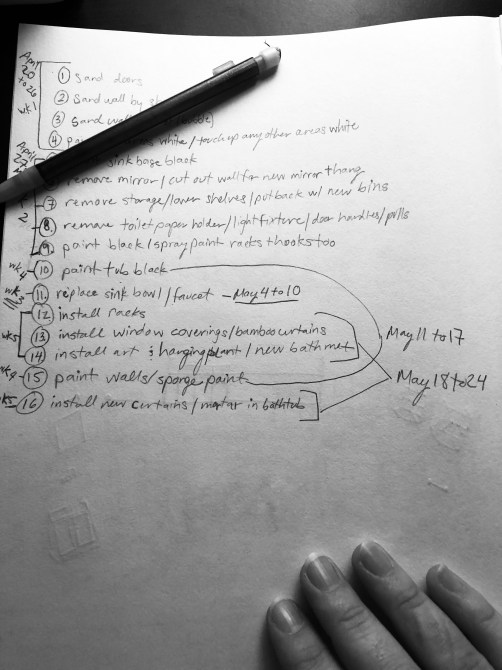 April 20 to 26 wk 1
① Sand doors
② Sand wall by
③ Sand
④ white / touch up any other areas white
April
sink base black
remove mirror / cut out wall for new mirror thang
⑦ remove storage / lower shelves / put back w/ new bins
⑧ remove toilet paper holder / light fixture / door handles / pulls
⑨ paint black / spray paint racks & hooks too
wk 4 ⑩ paint tub black
wk 3 ⑪ replace sink bowl / faucet - May 4 to 10
⑫ install racks
wk5 ⑬ install window coverings / bamboo curtains
May 11 to 17
⑭ install art & hanging plant / new bath mat
wk4 ⑮ paint walls / sponge paint
May 18 to 24
wk5 ⑯ install new curtains / in bathtub